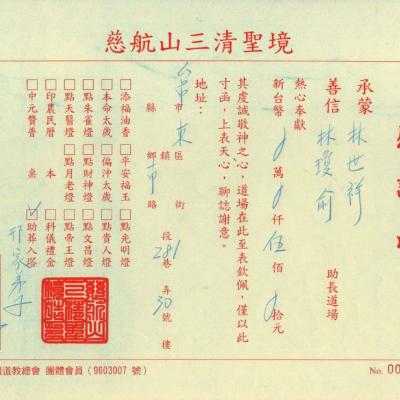 慈航山三清聖境
承蒙
善信 林世祥
林瓊俞
助長道場
熱心奉獻
新台幣 萬 仟 伍 佰 拾元
其虔誠敬神之心，道場在此至表欽佩，僅以此
寸函，上表天心，聊誌謝意。
地址： 台中 縣市 東 鄉鎮區 路街 段 281 巷 弄 30 號 樓
□添福油香 □平安福玉 □點光明燈
□本命太歲 □偏沖太歲 □點貴人燈
□點朱雀燈 □點財神燈 □點文昌燈
□點天醫燈 □點月老燈 □點帝王燈
□印農民曆 本 □科儀禮金
□中元贊普 桌 □助葬入塔
道教總會 團體會員（9603007 號）
No. 00